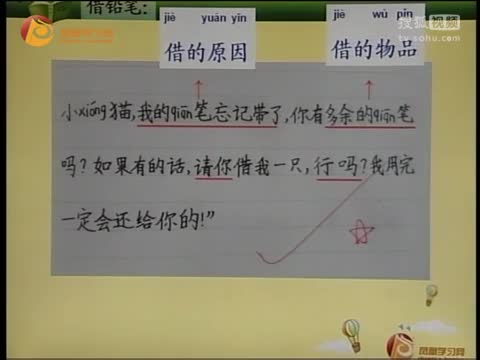 借铅笔:
jiè yuán yīn
借的原因
jiè wù pǐn
借的物品
搜狐视频
tv.sohu.com
凤凰学习网
小xióng猫,我的qiān笔忘记带了,你有多余的qiān笔
吗?如果有的话,请你借我一只,行吗?我用完
一定会还给你的!”
凤凰学习网